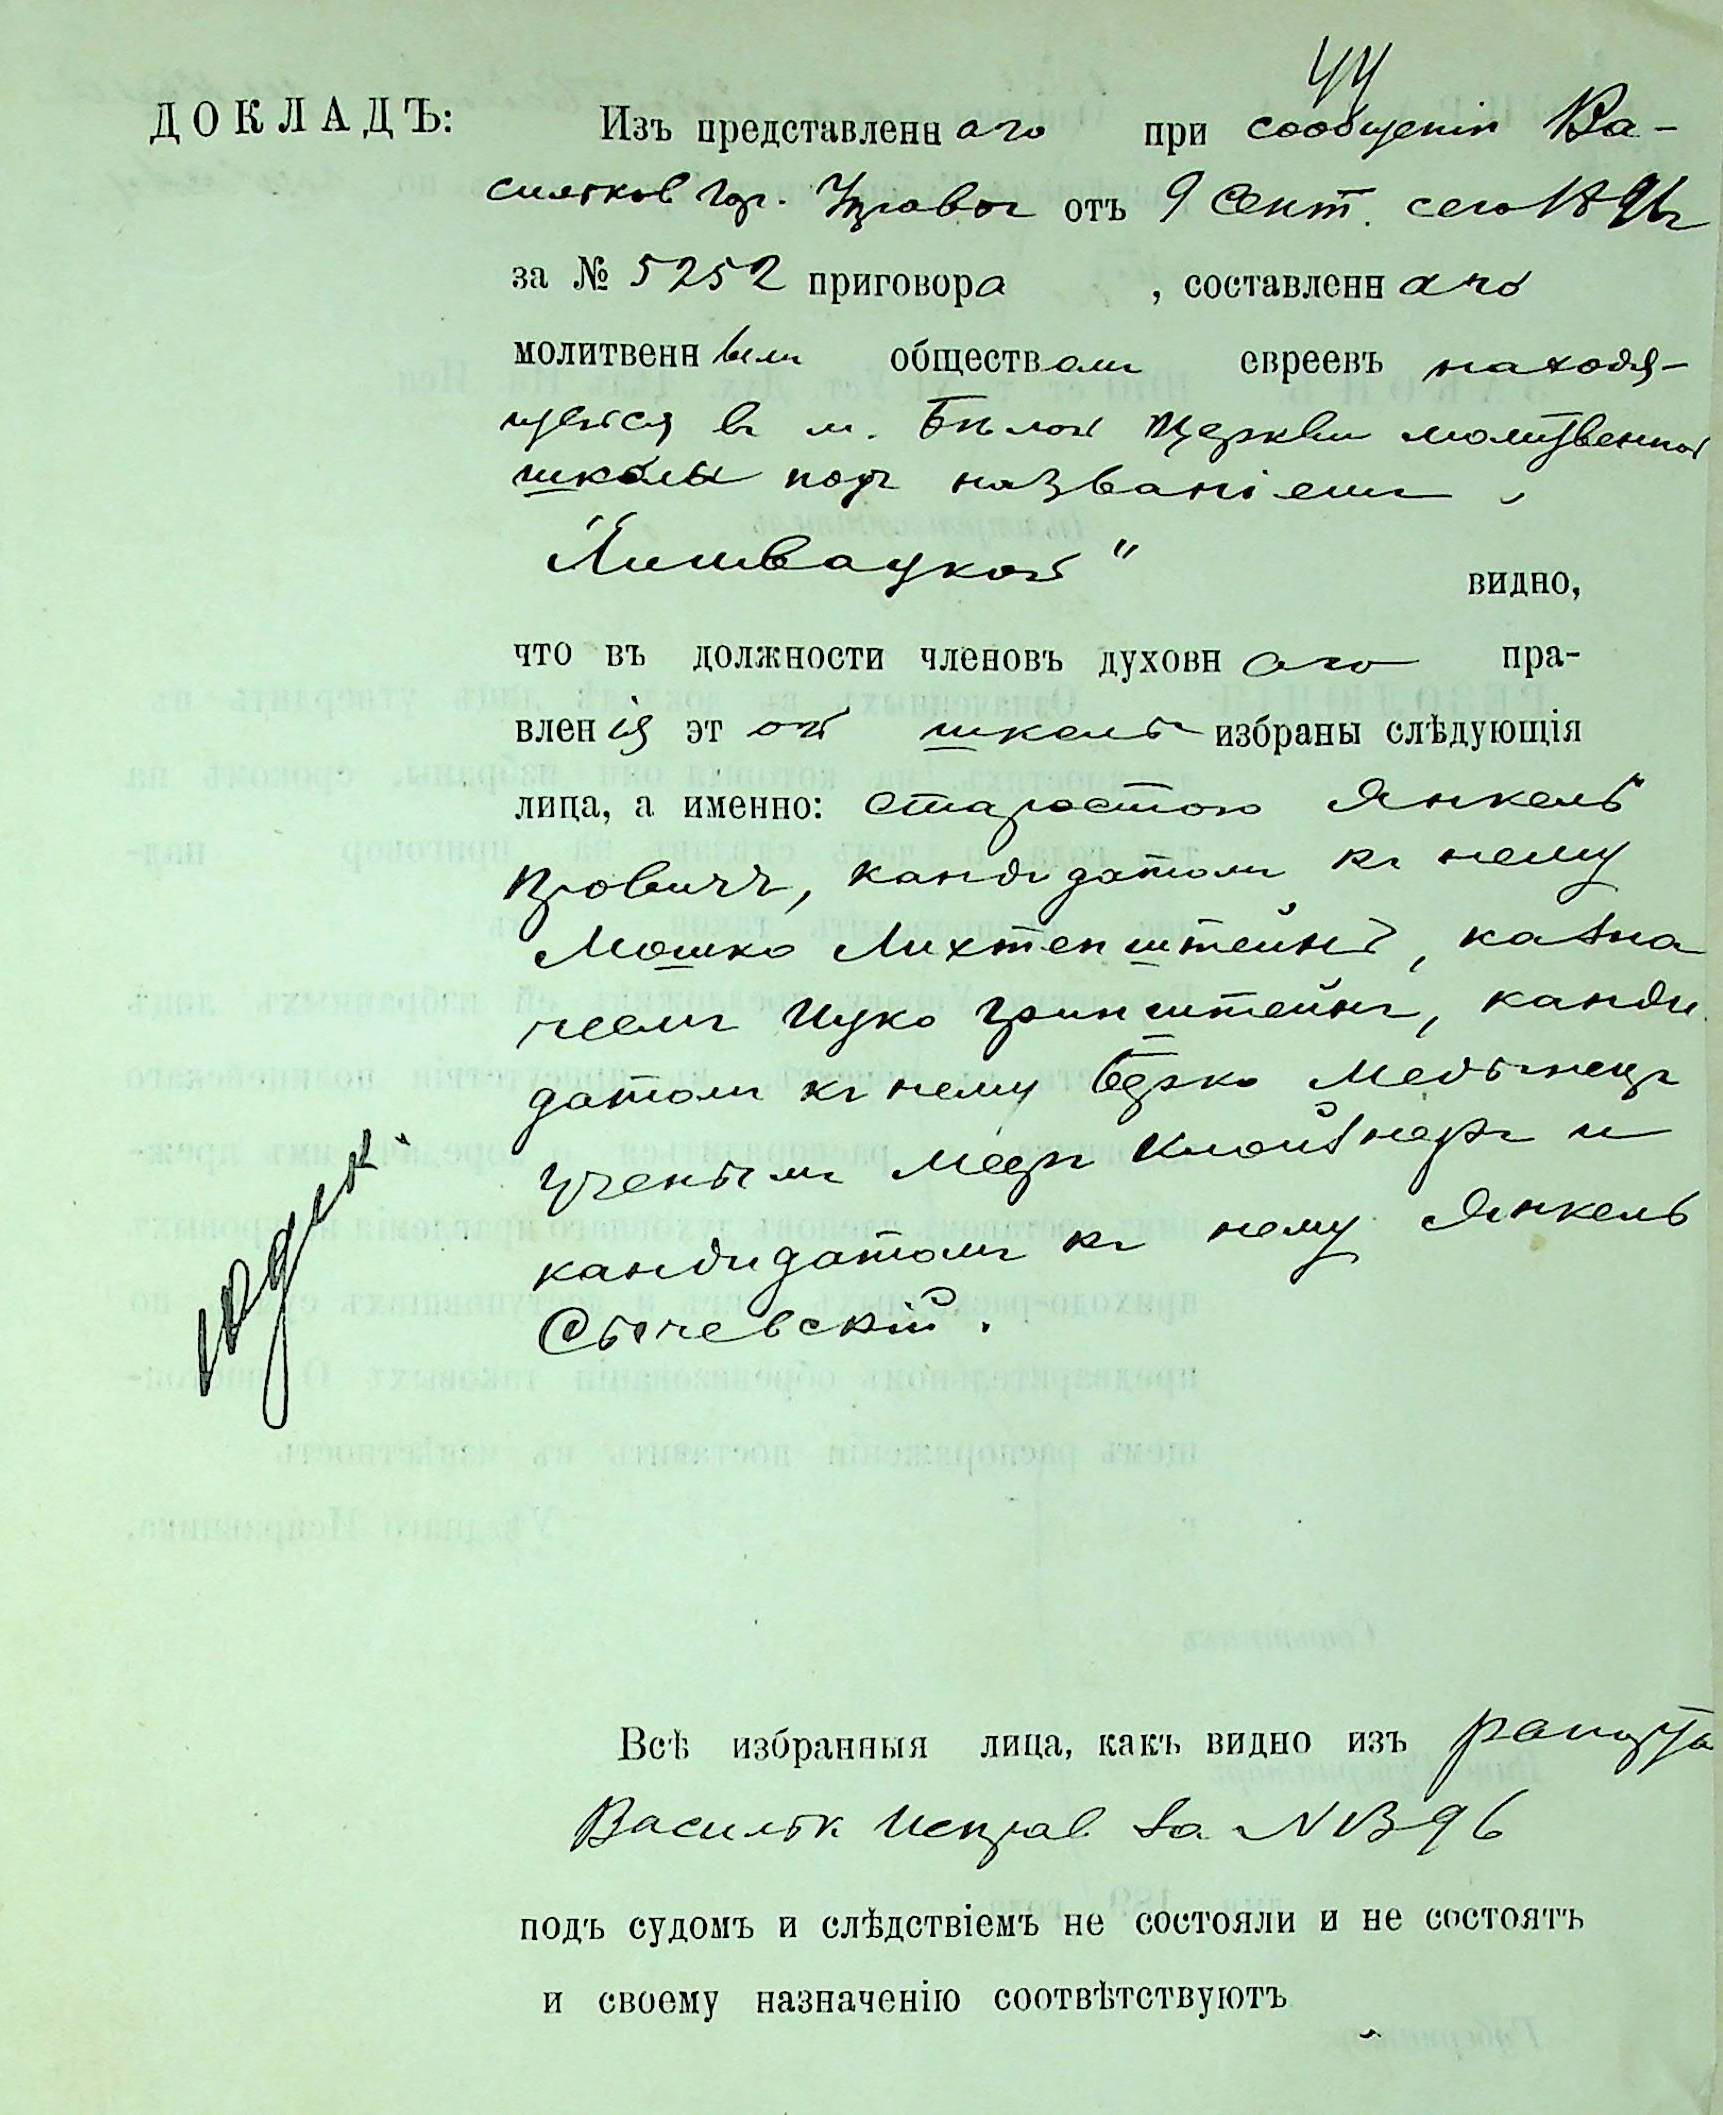 44
ДОКЛАДЪ: Изъ представленнаго при сообщеніи Ва-
сильков гор. Управы отъ 9 Сент. сего 1896 г
за № 5252 приговора , составленнаго
молитвеннымъ обществомъ евреевъ находя-
щейся въ м. Бѣлой Церкви молитвенной
школы подъ названіемъ „
видно,
что въ должности членовъ духовнаго пра-
вленія этой школы избраны слѣдующія
лица, а именно: старостою Янкель
кандидатомъ къ нему
Мошко Лихтенштейнъ, казна
чеемъ Ицко Гринштейнъ, канди
датомъ къ нему Берко Медынецъ
ученымъ Мееръ Клойзнеръ и
кандидатомъ къ нему Янкель
Сычевскій.
Всѣ избранныя лица, какъ видно изъ рапорта
Васильк Исправ за №
подъ судомъ и слѣдствіемъ не состояли и не состоятъ
и своему назначенію соотвѣтствуютъ